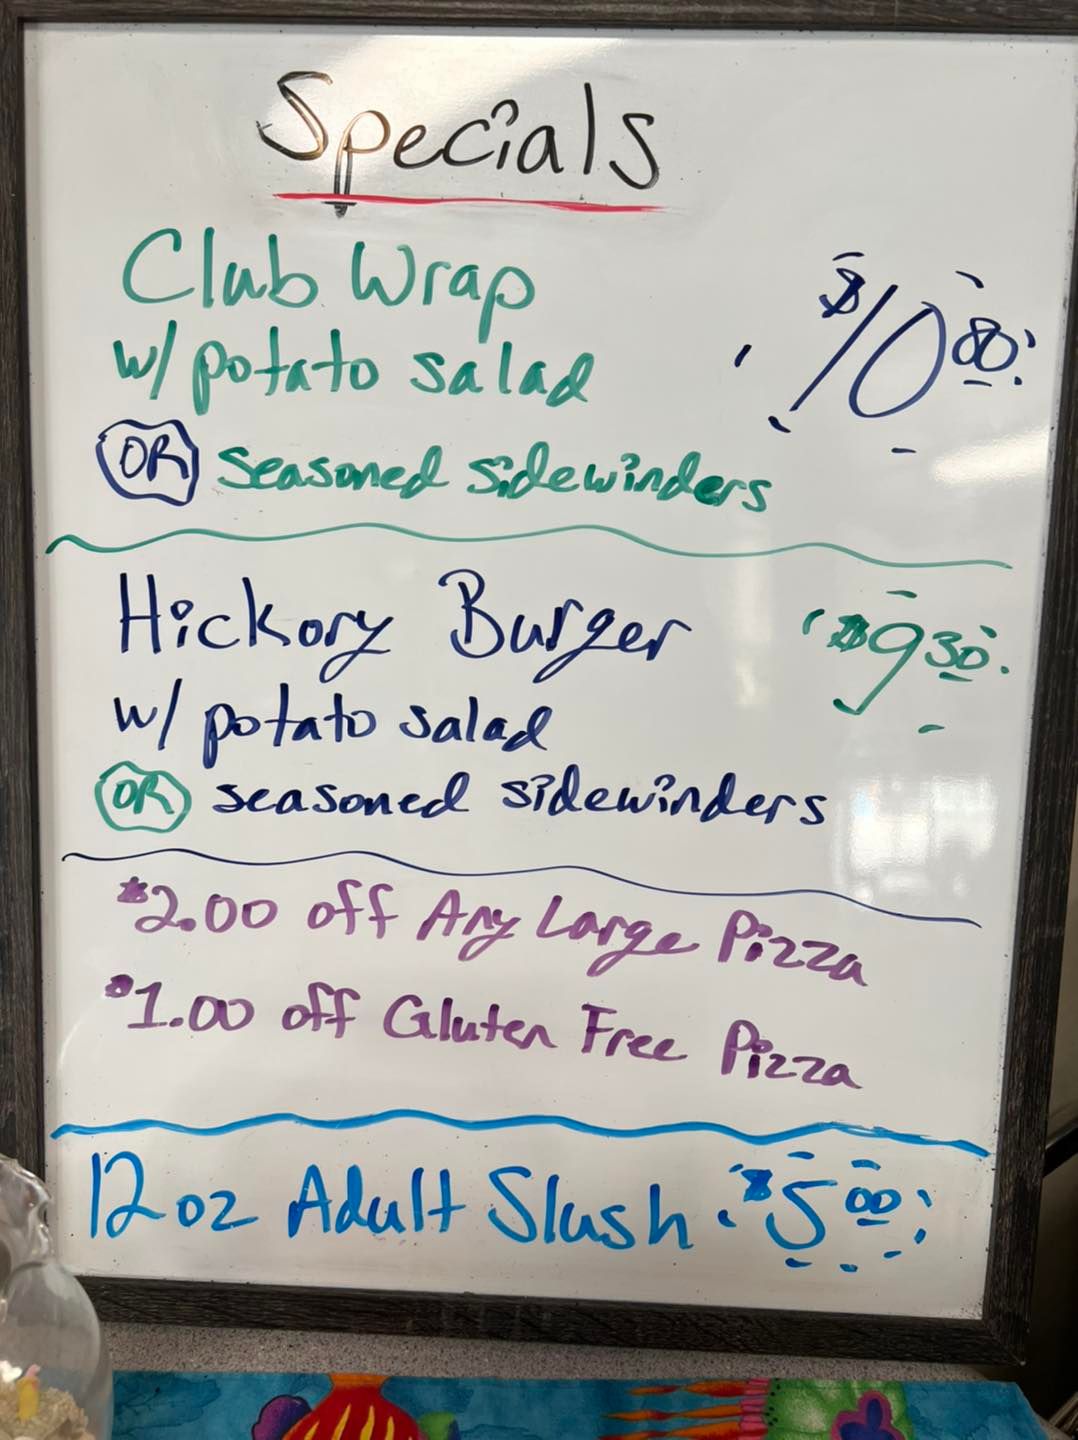 Specials
Club Wrap $10 00
w/ potato salad
OR seasoned sidewinders
Hickory Burger $9 30
w/ potato salad
OR seasoned sidewinders
$2.00 off Any Large Pizza
$1.00 off Gluten Free Pizza
12 oz Adult Slush $5 00